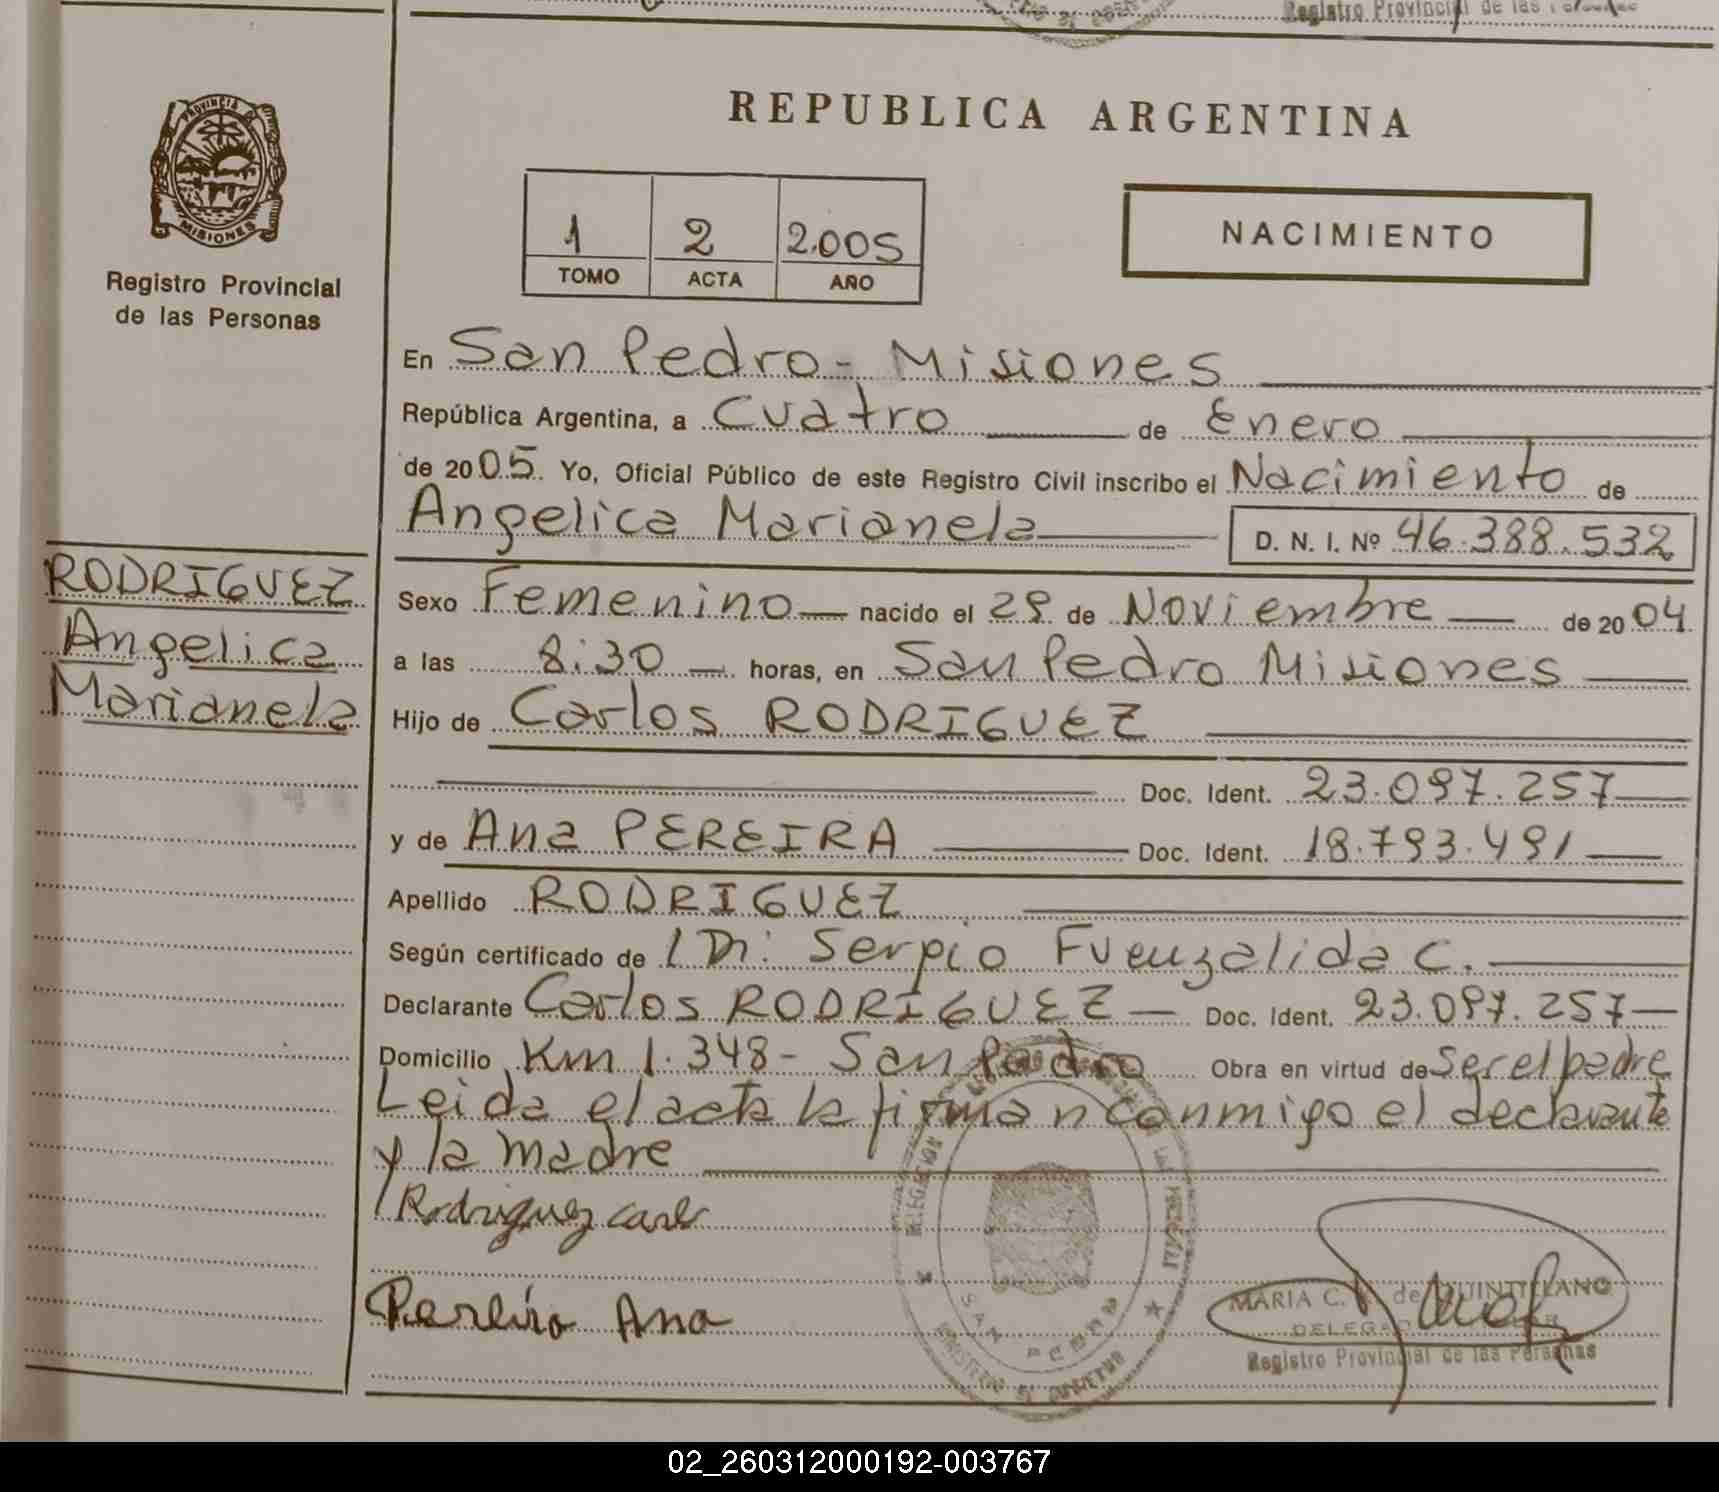 Registro Provincial de las Personas
PROVINCIA DE
MISIONES
Registro Provincial
de las Personas
REPUBLICA ARGENTINA
1 2 2.005
TOMO ACTA AÑO
NACIMIENTO
En San Pedro - Misiones
República Argentina, a Cuatro de Enero
de 2005. Yo, Oficial Público de este Registro Civil inscribo el Nacimiento de
Angelica Marianela D. N. I. Nº 46.388.532
RODRIGUEZ
Angelica
Marianela
Sexo Femenino nacido el 29 de Noviembre de 2004
a las 8:30 horas, en San Pedro Misiones
Hijo de Carlos RODRIGUEZ
Doc. Ident. 23.097.257
y de Ana PEREIRA Doc. Ident. 18.793.491
Apellido RODRIGUEZ
Según certificado de Dr: Sergio Fuenzalida C.
Declarante Carlos RODRIGUEZ Doc. Ident. 23.097.257
Domicilio Km 1.348 - San Pedro Obra en virtud de Ser el padre
Leida el acta la firman conmigo el declarante
y la madre
Rodriguez Carlo
Pereira Ana
DELEGACION
SAN PEDRO
MINISTERIO DE GOBIERNO
MARIA C. de QUINTELANO
Registro Provincial de las Personas
02_260312000192-003767